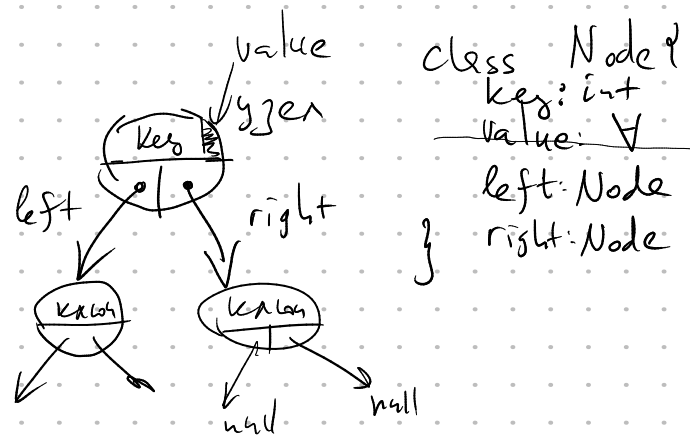 value
узел
key
left
right
ключ
ключ
null
null
class Node {
key: int
value: ∀
left: Node
right: Node
}